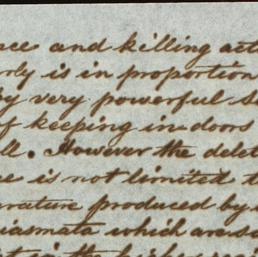 and killing act
is in proportion
by very powerful
of keeping in doors
ll. However the delet
is not limited t
rature produced by
iasmata which are so
in the higher regi